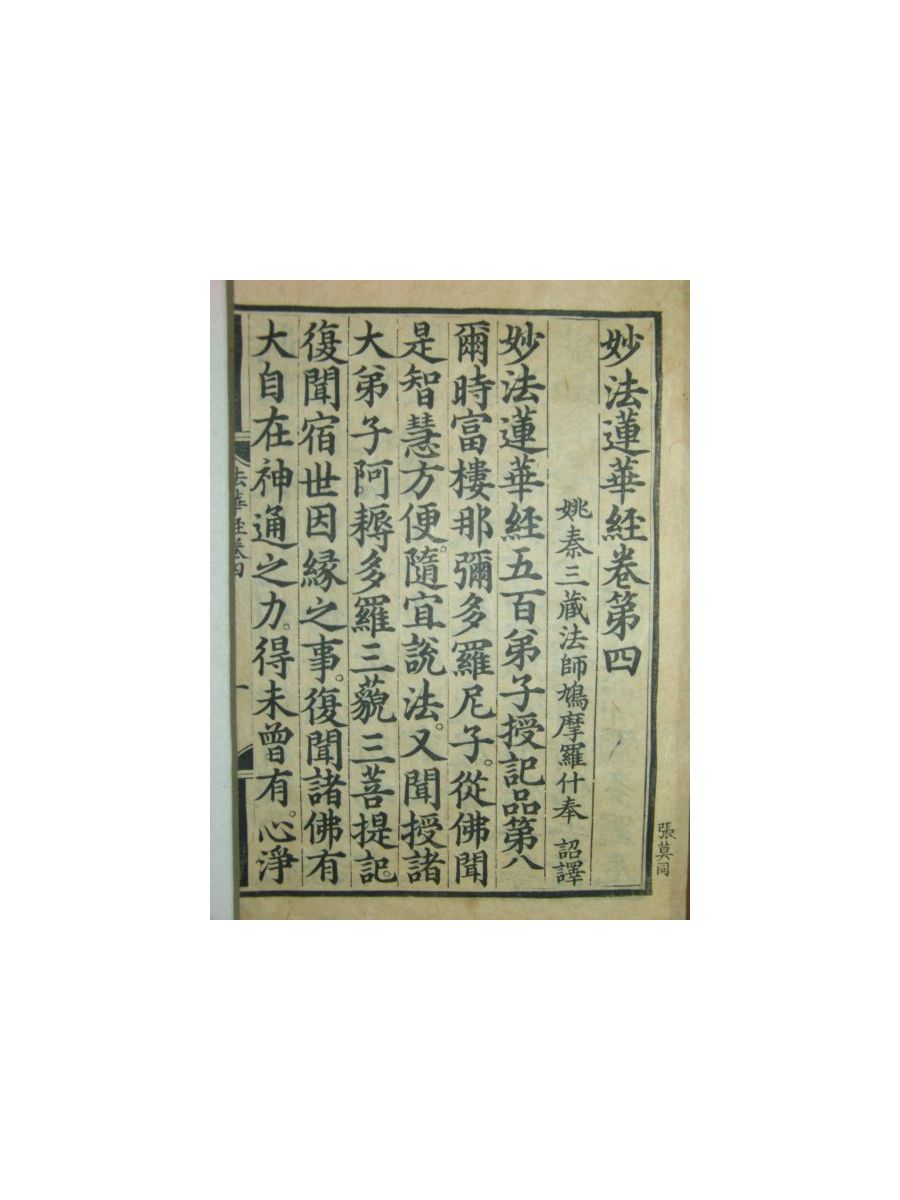 妙法蓮華經卷第四
姚秦三藏法師鳩摩羅什奉 詔譯
妙法蓮華經五百弟子授記品第八
爾時富樓那彌多羅尼子。從佛聞
是智慧方便。隨宜說法。又聞授諸
大弟子阿。耨多羅三藐三菩提記。
復聞宿世因緣之事。復聞諸佛有
大自在神通之力。得未曾有。心淨
法華經卷四
一
張莫同